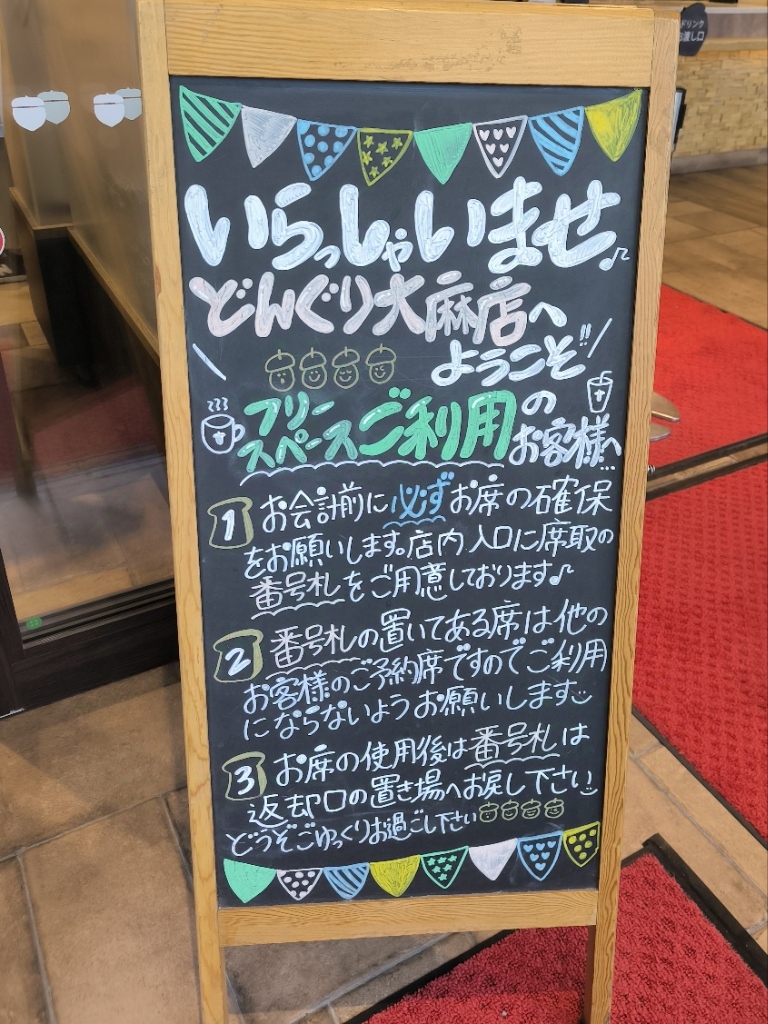 ドリンク
お渡し口
いらっしゃいませ♪
どんぐり大麻店へ
ようこそ!!
フリー
スペースご利用の
お客様へ…
1 お会計前に必ずお席の確保
をお願いします。店内入口に席取の
番号札をご用意しております♪
2 番号札の置いてある席は他の
お客様のご予約席ですのでご利用
にならないようお願いします
3 お席の使用後は番号札は
返却口の置き場へお戻し下さい
どうぞごゆっくりお過ごし下さい